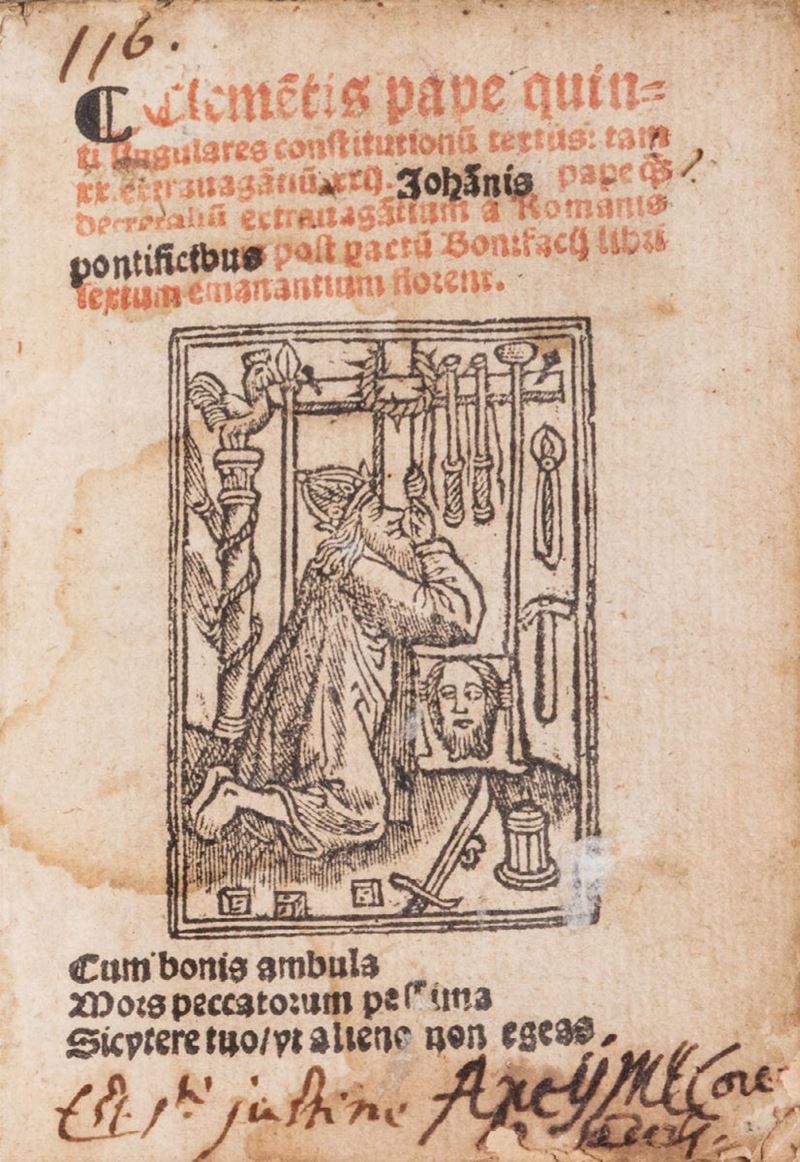 116.
C Clemētis pape quin=
ti singulares constitutionū textus: tam
xx. extrauagātiū xxij. Johānis pape q̄s
decretaliū extrauagātium a Romanis
pontificibus post pactū Bonifacij libri
sextum emanantium florent.
Cum bonis ambula
Mors peccatorum pessima
Sic vtere tuo/vt alieno non egeas.
Est justine